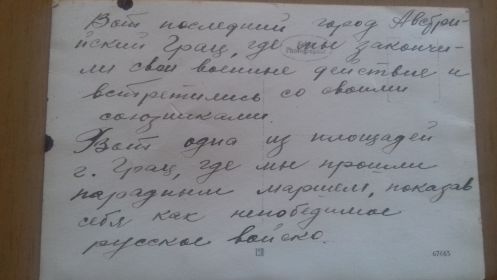 Вот последний город Австри-
йский Грац, где мы закончи-
ли свои военные действие и
встретились со своими
союзниками.
Вот одна из площадей
г. Грац, где мы прошли
парадным маршем, показав
себя как непобедимое
русское войско.
67445